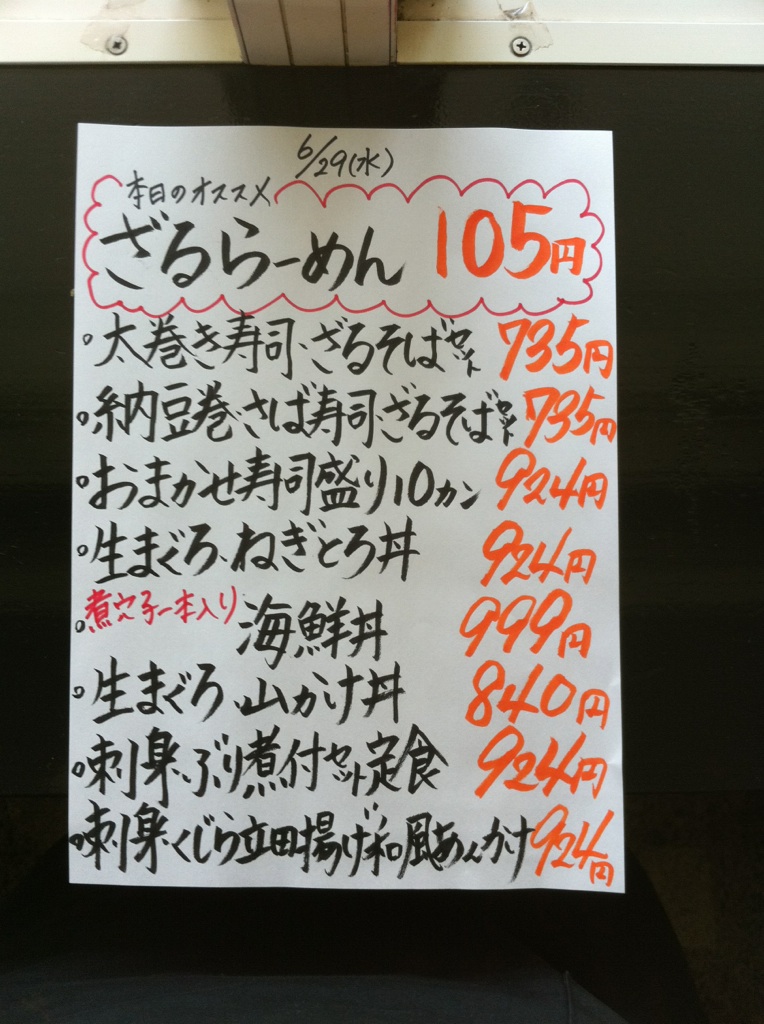 6/29(水)
本日のオススメ
ざるらーめん 105円
。太巻き寿司、ざるそばセット 735円
。納豆巻、さば寿司、ざるそばセット 735円
。おまかせ寿司盛り10カン 924円
。生まぐろ、ねぎとろ丼 924円
。煮穴子一本入り 海鮮丼 999円
。生まぐろ、山かけ丼 840円
。刺身、ぶり煮付セット定食 924円
。刺身、くじら立田揚げ和風あんかけ 924円